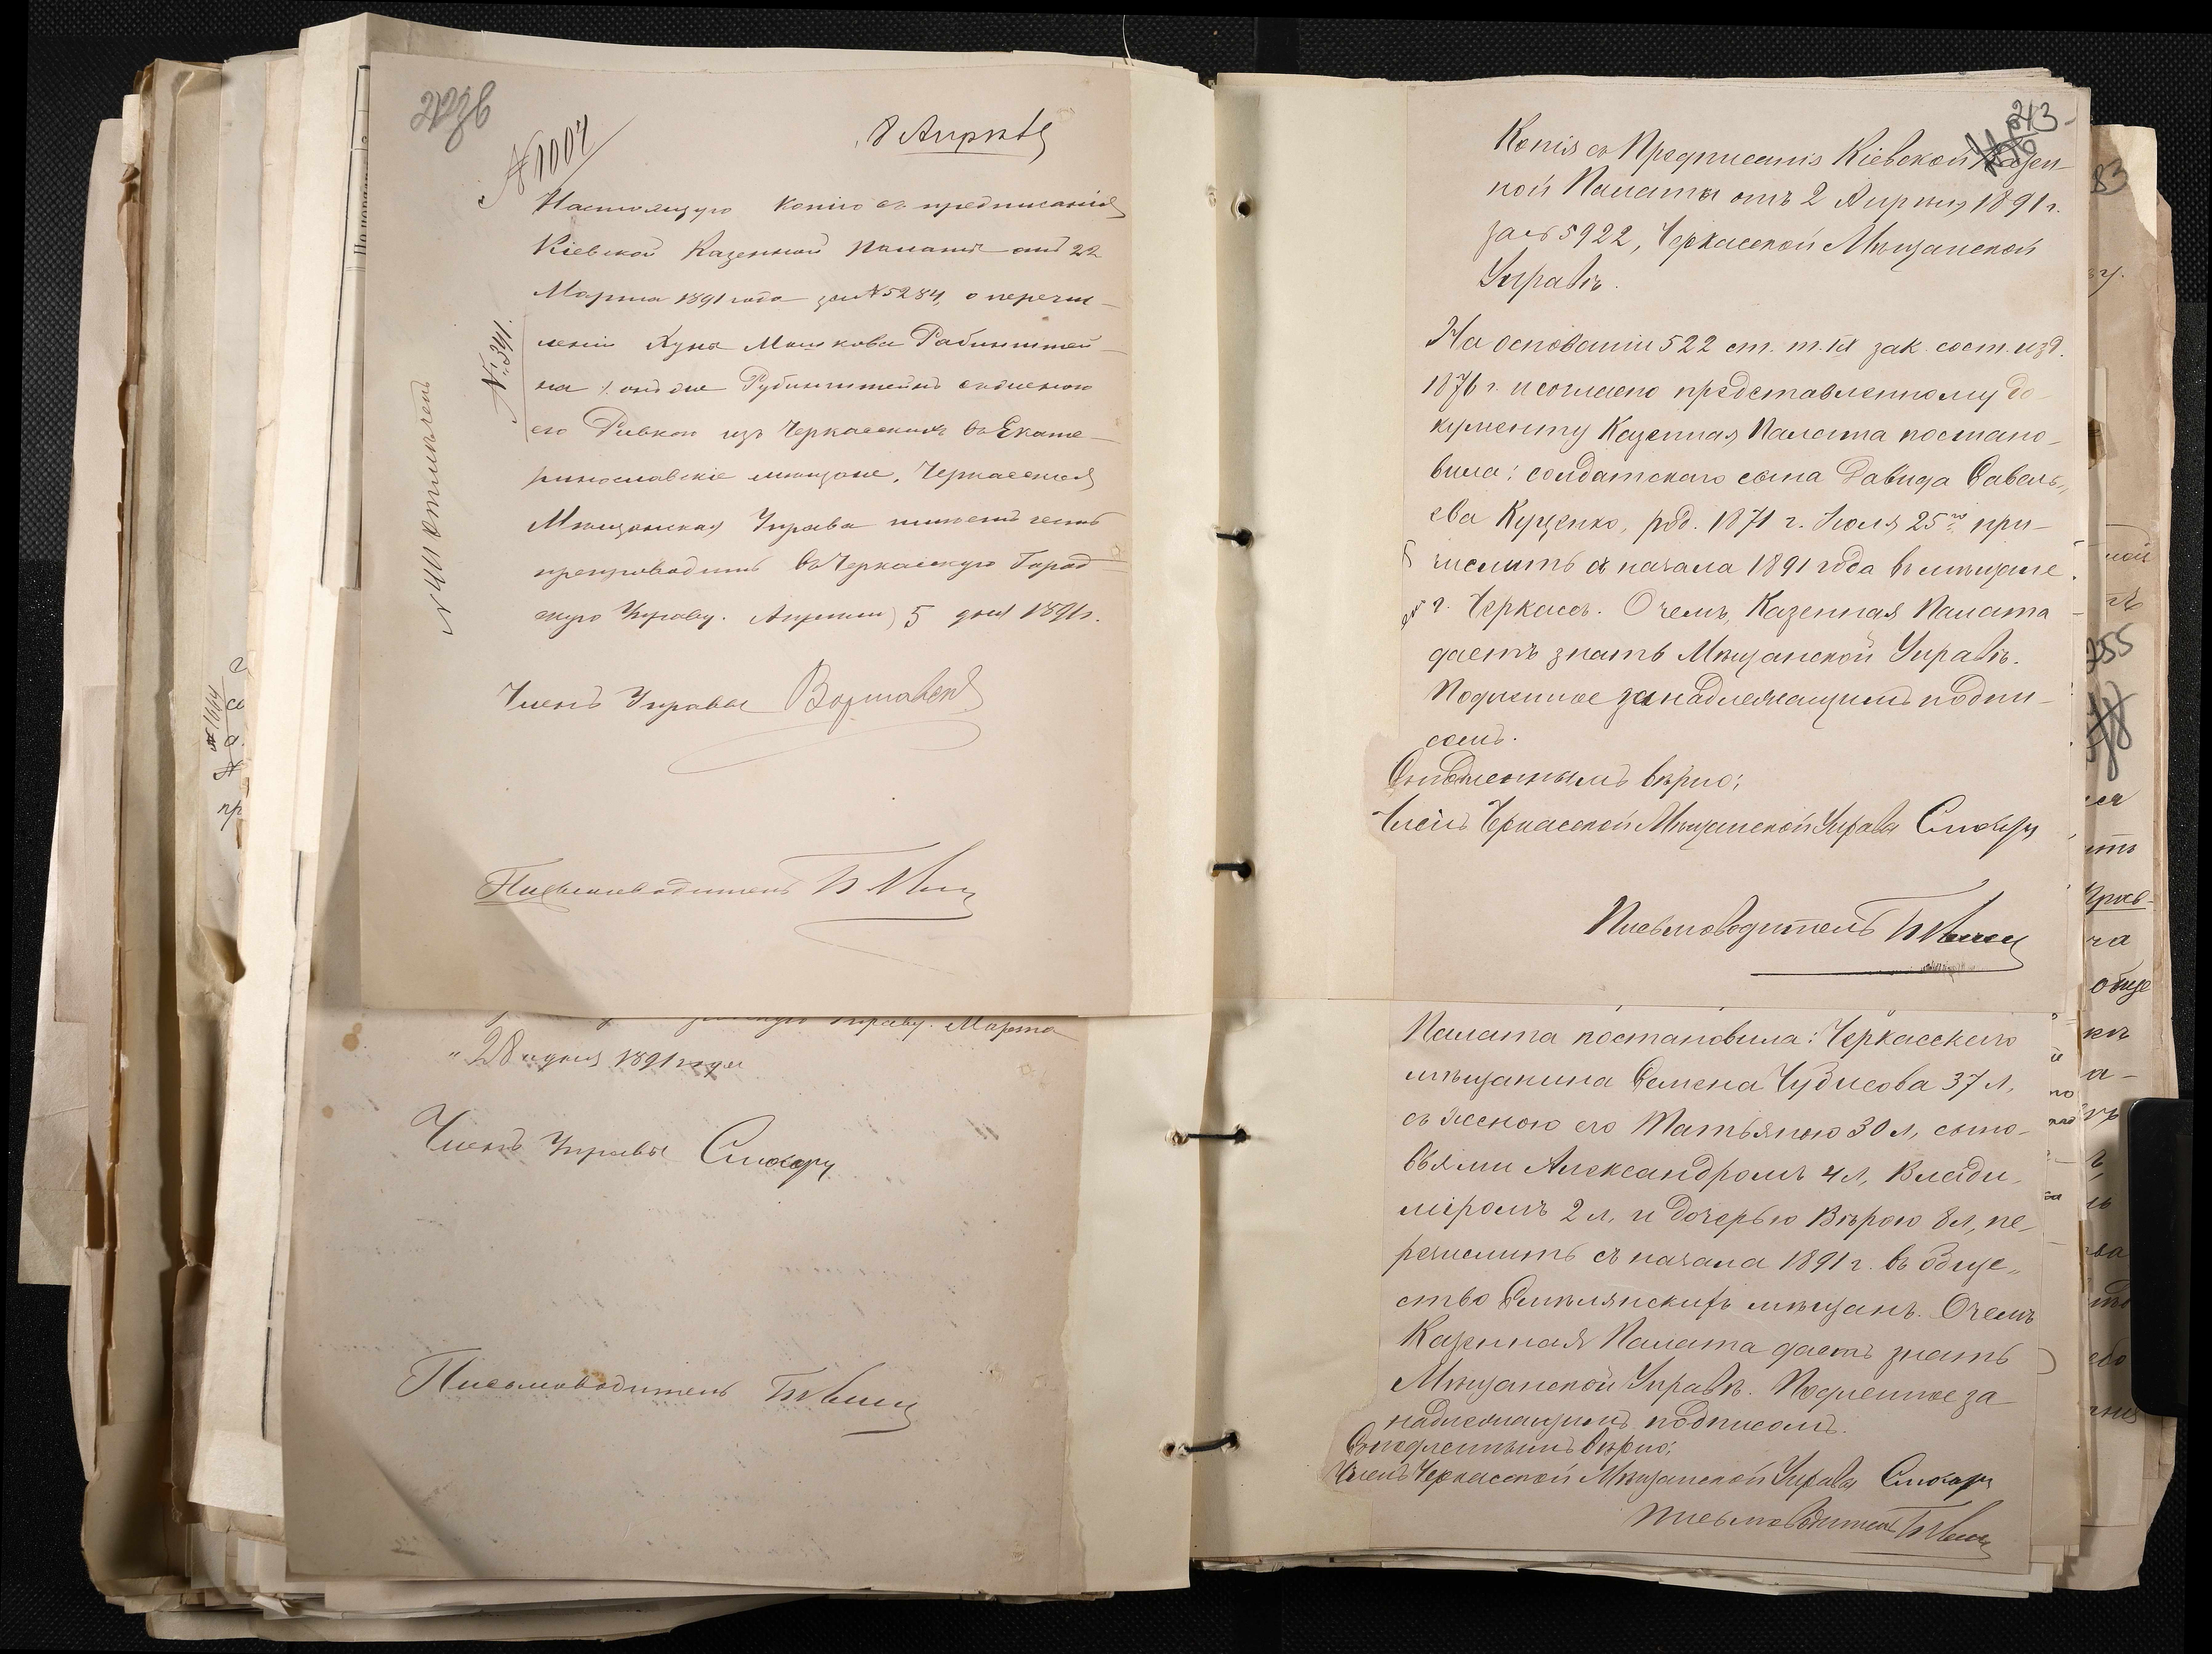 8 Апрѣля
№ 1004
Настоящую копію съ предписанія
Кіевской Казенной Палаты отъ 22
Марта 1891 года за № 5284, о перечи-
сленіи Хуны Мошкова Рабинштей-
на /: онъ же Рубинштейнъ съ женою
его Ривкою изъ Черкасскихъ въ Екате-
ринославскіе мѣщане, Черкасская
Мѣщанская Управа имѣетъ честь
препроводить въ Черкасскую Город-
скую Управу. Апрѣля 5 дня 1891 г.
№ 341.
Членъ Управы Варшавск
Письмоводитель
Управу. Марта
"28 " дня 1891 года
Членъ Управы Слюсарь
Письмоводитель
243
Копія съ Предписанія Кіевской Казен-
ной Палаты отъ 2 Апрѣля 1891 г.
за № 5922, Черкасской Мѣщанской
Управѣ.
На основаніи 522 ст. т. IX зак. сост. изд.
1876 г. и согласно представленному до-
кументу Казенная Палата постано-
вила: солдатскаго сына Давида Савель-
ева Куценко, род. 1871 г. Іюля 25го при-
числить съ начала 1891 года въ мѣщане
г. Черкассъ. О чемъ, Казенная Палата
даетъ знать Мѣщанской Управѣ.
Подлинное за надлежащимъ подпи-
сомъ.
Съ подлиннымъ вѣрно:
Членъ Черкасской Мѣщанской Управы Слюсарь
Письмоводитель
Палата постановила: Черкасскаго
мѣщанина Семена Чудисова 37 л.
съ женою его Татьяною 30 л, сыно-
вьями Александромъ 4 л, Влади-
міромъ 2 л. и дочерью Вѣрою 8 л, пе-
речислить съ начала 1891 г. въ обще-
ство Смѣлянскихъ мѣщанъ. О чемъ
Казенная Палата даетъ знать
Мѣщанской Управѣ. Подлинное за
надлежащимъ подписомъ.
Съ подлиннымъ вѣрно:
Членъ Черкасской Мѣщанской Управы Слюсарь
Письмоводитель